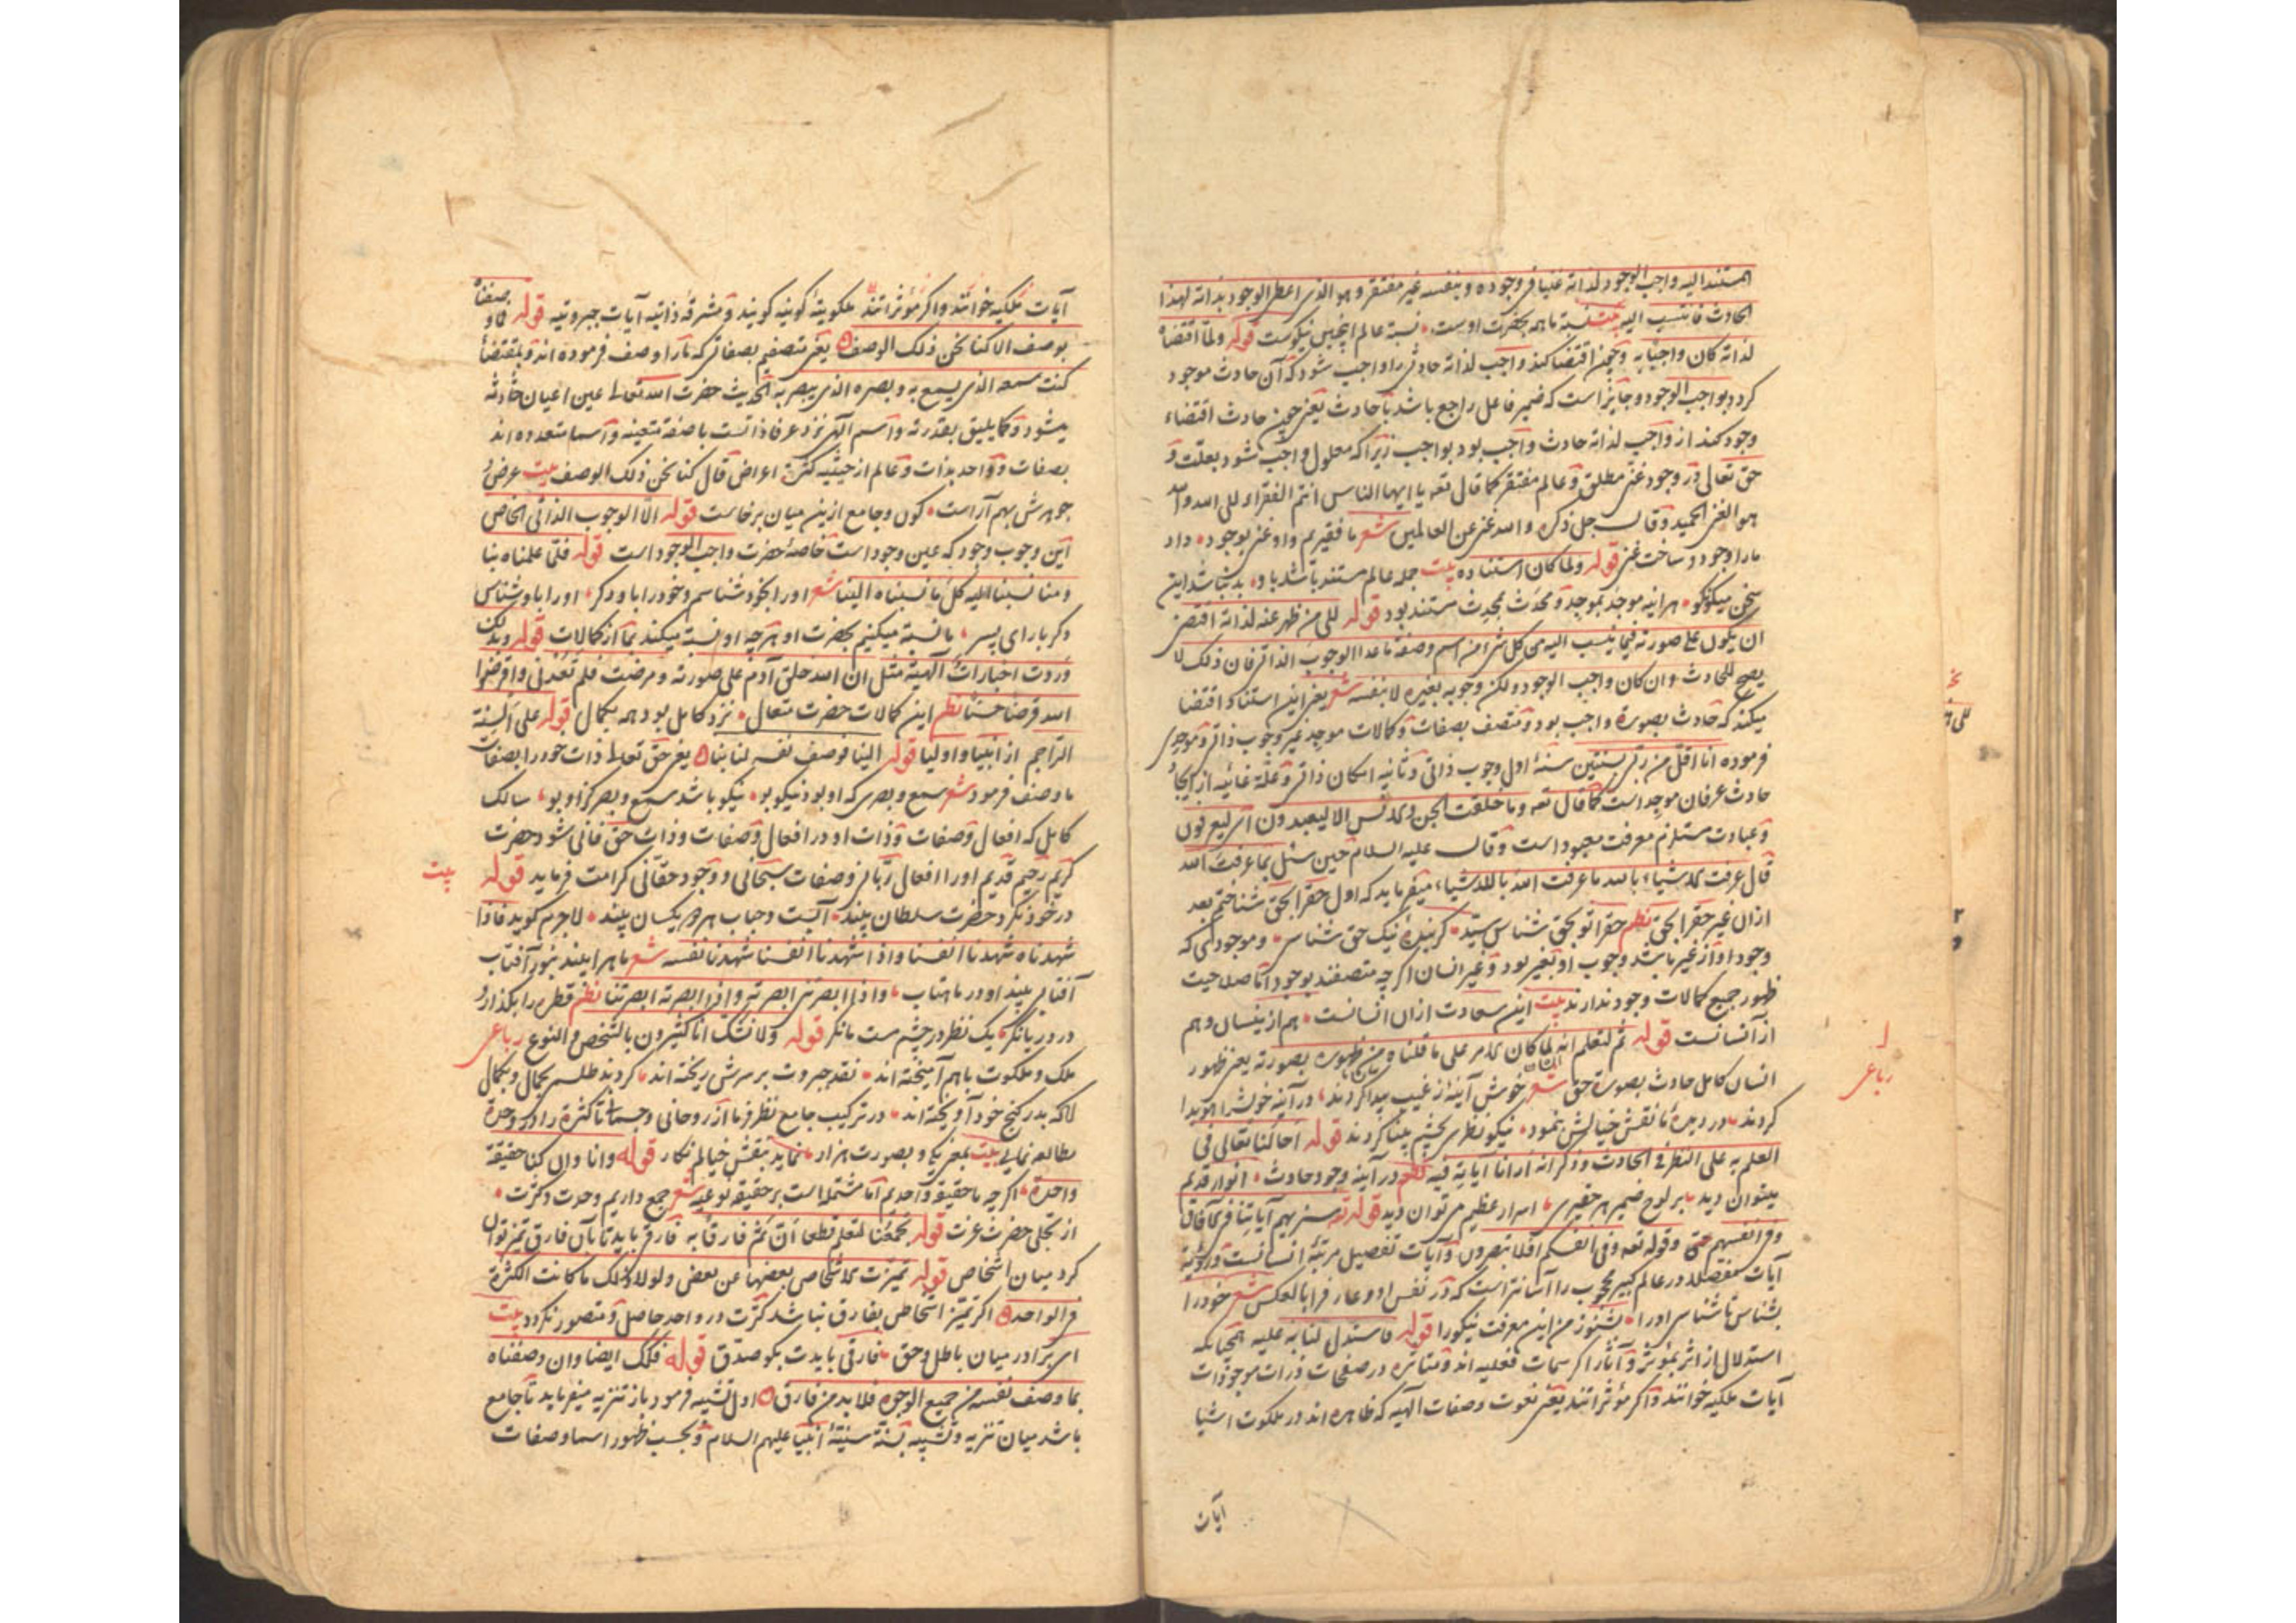 المستند اليه واجب الوجود لذاته غنيا فى وجوده و بنفسه غير مفتقر و هو الذى اعطى الوجود بذاته لهذا
الحادث فانتسب اليه نسبة ما همه بحضرت اوست نسبة عالم اينچنين نيكوست قوله ولما اقتضاه
لذاته كان واجبا به و چون اقتضا كند واجب لذاته حادثى را واجب شود كه آن حادث موجود
كردد بواجب الوجود و جايز است كه ضمير فاعل راجع باشد با حادث يعنى چون حادث اقتضاء
وجود كند از واجب لذاته حادث واجب بود بواجب زيرا كه معلول واجب شود بعلت و
حق تعالى در وجود غنى مطلق و عالم مفتقر كما قال تعه يا ايها الناس انتم الفقراء الى الله والله
هو الغنى الحميد و قال جل ذكره والله غنى عن العالمين شعر ما فقيريم و او غنى بوجود داد
ما را وجود و ساخت غنى قوله ولما كان استناده بيت جمله عالم مستند باشد باو بد نباشد اين
سخن ميكو نكو هر اينه موجد بموجد و محدث محدث مستند بود قوله الى من ظهر عنه لذاته اقتضى
ان يكون على صورته فيما ينسب اليه من كل شئ من اسم وصفة ما عدا الوجوب الذاتى فان ذلك لا
يصح للحادث و ان كان واجب الوجود ولكن وجوبه بغيره لا بنفسه شعر يعنى اين استناد اقتضا
ميكند كه حادث بصورة واجب بود و متصف بصفات و كمالات موجد غير وجوب ذاتى و موجدى
فرموده انا اقل من ربى بسنتين سنة اول وجوب ذاتى و ثانيه امكان ذاتى و علة غائيه از ايجاد
حادث عرفان موجد است كما قال تعه وما خلقت الجن والانس الا ليعبدون اى ليعرفون
و عبادت مستلزم معرفت معبود است و قال عليه السلام حين سئل بما عرفت الله
قال عرفت الاشياء بالله ما عرفت الله بالاشياء ميفرمايد كه اول حق را بحق شناختم بعد
ازان غير حق را بحق نظم حق را تو بحق شناس سيد كر بنده نيك حق شناسى و موجودى كه
وجود او از غير باشد وجوب او بغير بود و غير انسان اكر چه متصفند بوجود اما صلاحيت
ظهور جميع كمالات وجود ندارند بيت اين سعادت ازان انسانست هم ازينسان و هم
ازآنسانست قوله ثم لتعلم انه لما كان الامر على ما قلناه من ظهوره بصورته يعنى ظهور
انسان كامل حادث بصورة حق شعر خوش آينه ز غيب پيدا كردند در آينه خويش را هويدا
كردند در ديده ما نقش خيالش بنمود نيكو نظرى بچشم بينا كردند قوله احالنا تعالى فى
العلم به على النظر فى الحادث و ذكر انه ارانا آياته فيه نظم در آينه وجود حادث انوار قديم
ميتوان ديد بر لوح ضمير هر حقيرى اسرار عظيم مى توان ديد قوله تعه سنريهم آياتنا فى الآفاق
وفى انفسهم حتى وقوله تعه وفى انفسكم افلا تبصرون و آيات تفصيل مرتبه انسانست و رؤية
آيات مفصله در عالم كبير محجوب را آسانتر است كه در نفس او و عارف را بالعكس شعر خود را
بشناس تا شناسى او را بشنو ز من اين معرفت نيكو را قوله فاستدل لنا به عليه همچنانكه
استدلال از اثر بمؤثر و آثار اكر سمات فعليه اند و متاثره در صفحات ذرات موجودات
آيات ملكيه خوانند و اكر مؤثراتند يعنى نعوت و صفات آلهيه كه ظاهره اند در ملكوت اشيا
آيات
رباعى
آيات ملكيه خوانند و اكر مؤثراتند ملكوتية كونيه كويند و مشرقه ذاتيه آيات جبروتيه قوله فما وصفناه
بوصف الا كنا نحن ذلك الوصف يعنى متصفيم بصفاتى كه ما را وصف فرموده اند و بمقتضاء
كنت سمعه الذى يسمع به و بصره الذى يبصر به الحديث حضرت الله تعالى عين اعيان حادثه
ميشود و كما يليق بقدرته و اسم آلهى نزد عرفا ذاتست با صفة متعينه و اسما متعدده اند
بصفات و واحد بذات و عالم از حيثيه كثرة اعراض قال كنا نحن ذلك الوصف بيت عرض و
جوهرش بهم آراست كون و جامع ازين ميان برخاست قوله الا الوجوب الذاتى الخاص
اين وجوب وجود كه عين وجود است خاصه حضرت واجب الوجود است قوله فلما علمناه بنا
و منا نسبنا اليه كل ما نسبناه الينا شعر او را بخود شناسم و خود را باو دكر او را باو شناس
دكر بار اى پسر ما نسبة ميكنيم بحضرت او هرچه او نسبة ميكند بما از كمالات قوله وبذلك
وردت اخبارات الهية مثل ان الله خلق آدم على صورته و مرضت فلم تعدنى و اقرضوا
الله قرضا حسنا نظم اين كمالات حضرت متعال نزد كامل بود همه بكمال قوله على السنة
التراجم از انبيا و اوليا قوله الينا فوصف نفسه لنا بنا يعنى حق تعالى ذات خود را بصفات
ما وصف فرمود شعر سمع و بصرى كه او بود نيكو بود نيكو باشد سمع و بصر كز او بود سالك
كامل كه افعال و صفات و ذات او در افعال و صفات و ذات حق فانى شود حضرت
كريم رحيم قديم او را افعال ربانى و صفات سبحانى و وجود حقانى كرامت فرمايد قوله
بيت
در خود نكرد حضرت سلطان بيند آبست و حباب هر دو يكسان بيند لاجرم كويد فاذا
شهدناه شهدنا انفسنا و اذا شهدنا انفسنا شهدنا نفسه شعر ماه را بيند بنور آفتاب
آفتابى بيند او در ماهتاب و اذا ابصرتنى ابصرته و اذا ابصرته ابصرتنا نظم قطره را بكذار و
در دريا نكر يك نظر در چشم مست ما نكر قوله ولا نشك انا كثيرون بالشخص والنوع رباعى
ملك و ملكوت باهم آميخته اند نقد جبروت بر سرش ريخته اند كردند طلسم بجمال و بكمال
آنكه بدر كنج خود آويخته اند در تركيب جامع نظر فرما از روحانى و جسمانى تا كثرة را در وحدة
مطالعه نمايى بيت بمعنى يك و بصورت هزار نمايد بنقش خيالم نكار قوله وانا وان كنا حقيقة
واحدة اكر چه ما حقيقة واحديم اما مشتمله است بر حقيقة نوعيه شعر جمع داريم وحدت و كثرت
از تجلى حضرت عزت قوله تجمعنا لنعلم قطعا ان ثم فارقا به فارقى بايد تا بآن فارق تميز توان
كرد ميان اشخاص قوله تميزت الاشخاص بعضها عن بعض ولولا ذلك ما كانت الكثرة
فى الواحد اكر تميز اشخاص بفارق نباشد كثرت در واحد حاصل و متصور نكردد بيت
اى برادر ميان باطل و حق فارقى بايدت بكو صدق قوله فكذلك ايضا وان وصفناه
بما وصف نفسه من جميع الوجوه فلا بد من فارق اول تشبيه فرمود باز تنزيه ميفرمايد تا جامع
باشد ميان تنزيه و تشبيه بسنة سنية انبيا عليهم السلام و بحسب ظهور اسما و صفات